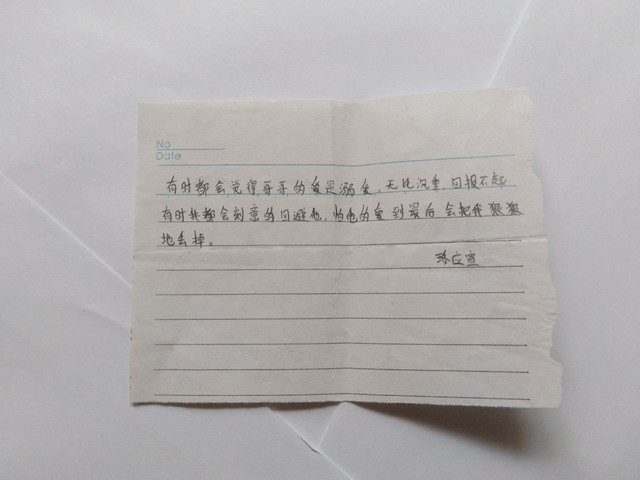 No
Date
有时都会觉得哥哥的爱是溺爱，无比沉重，回报不起
有时我都会刻意的回避他，怕他的爱到最后会把我狠狠
地丢掉。